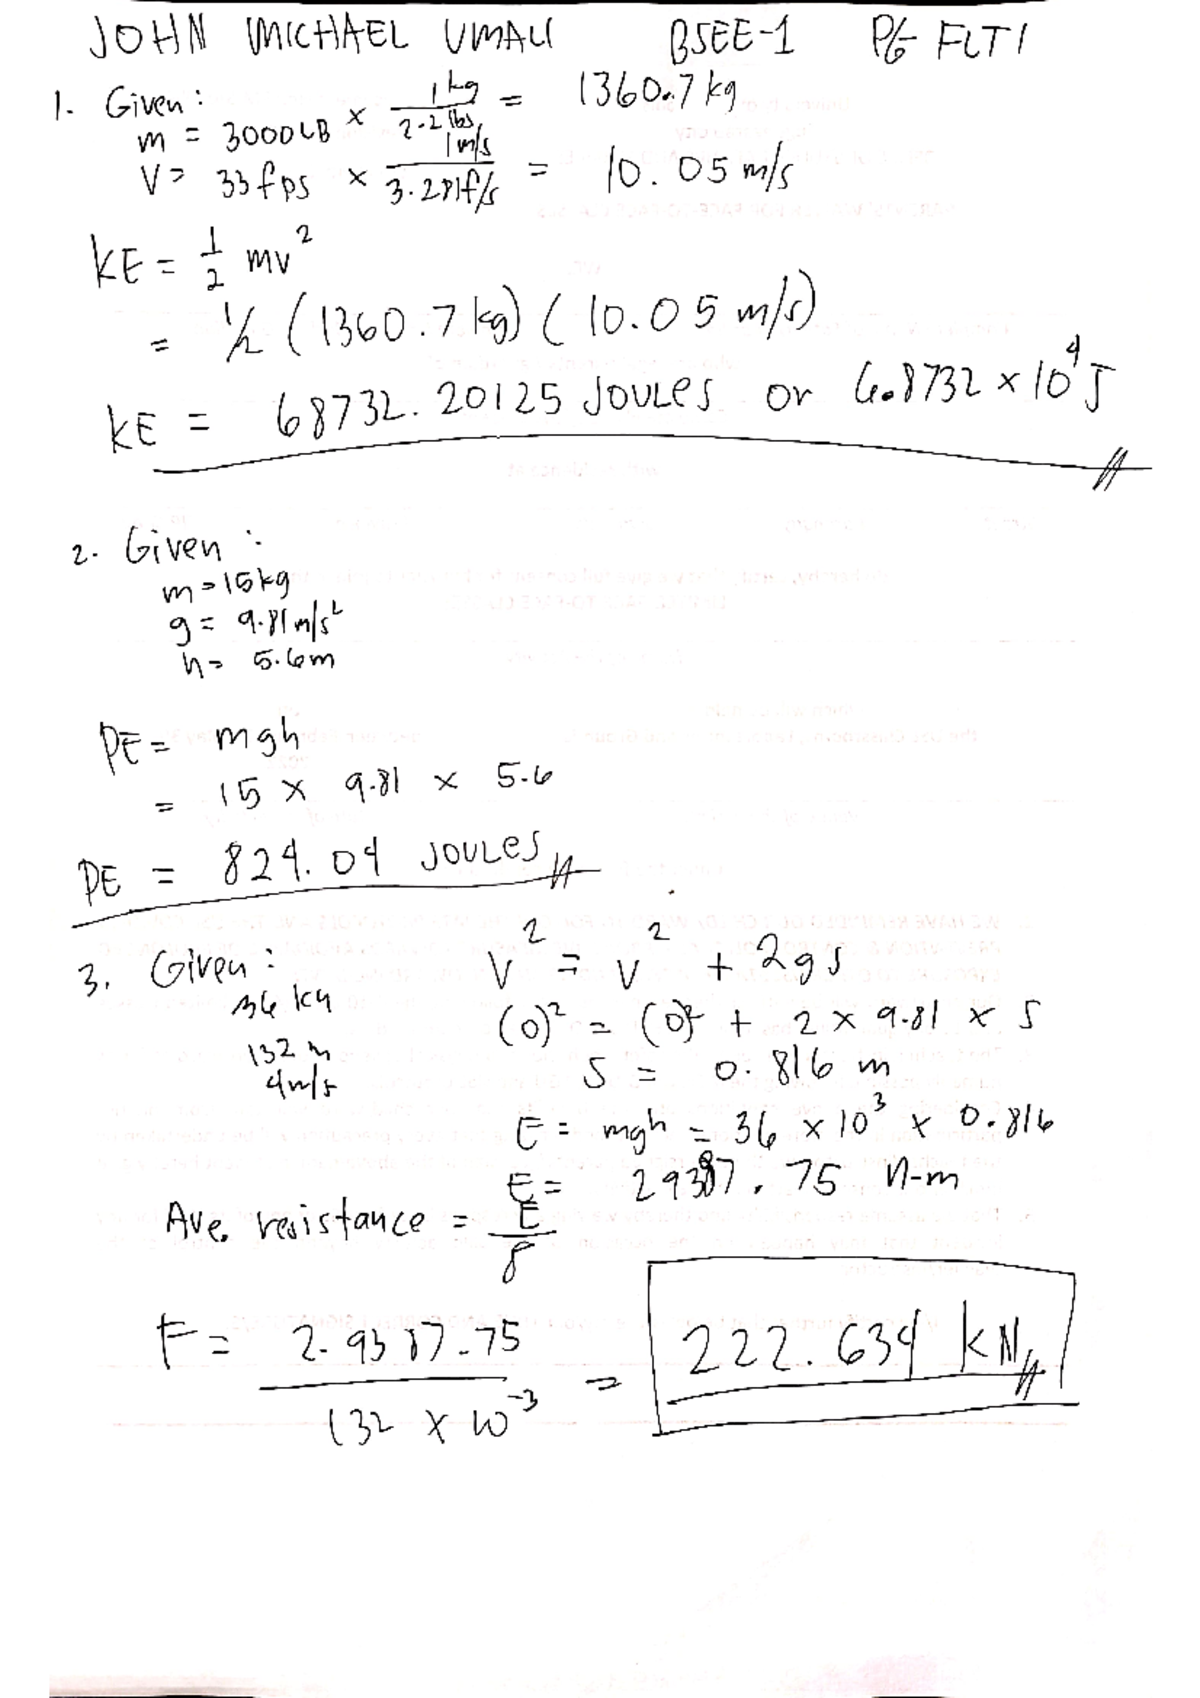 JOHN MICHAEL UMALI BSEE-1 PG FLT1
1. Given:
m = 3000LB × 1 kg / 2.2 lbs = 1360.7 kg
V = 33 fps × 1 m/s / 3.281 f/s = 10.05 m/s
KE = 1/2 mv²
= 1/2 (1360.7 kg) ( 10.05 m/s)
KE = 68732.20125 JOULES or 6.8732 × 10⁴ J
2. Given :
m = 15 kg
g = 9.81 m/s²
h = 5.6m
PE = mgh
= 15 × 9.81 × 5.6
PE = 824.04 JOULES
3. Given :
36 kg
132 m
4 m/s
V² = V² + 2gs
(0)² = (0)² + 2 × 9.81 × S
S = 0.816 m
E = mgh = 36 × 10³ × 0.816
E = 29387.75 N-m
Ave. resistance = E / 8
F = 2.9387.75 / 132 × 10⁻³ = 222.634 kN